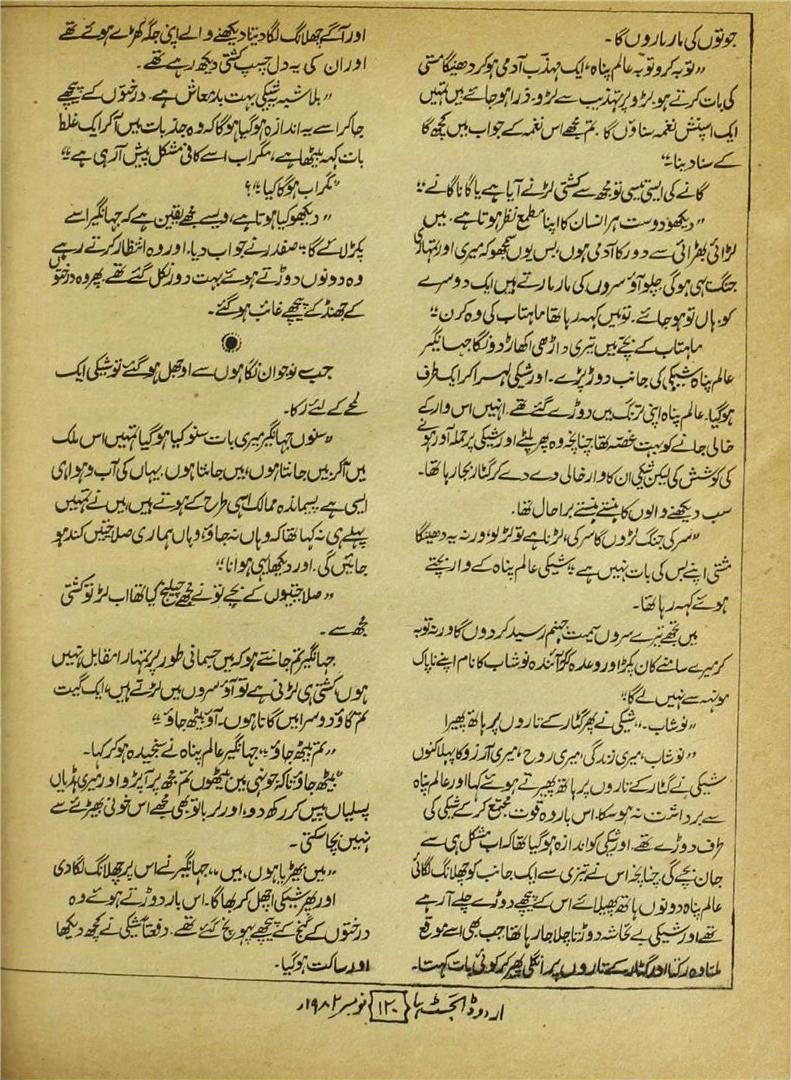 جوتوں کی مار ماروں گا۔
”توبہ کرو توبہ عالم پناہ“ ایک مہذب آدمی ہو کر دھینگا مشتی
کی بات کرتے ہو۔ لڑو پر تہذیب سے لڑو۔ ذرا ہو جائے میں تمہیں
ایک اسپنش نغمہ سناؤں گا۔ تم مجھے اس نغمہ کے جواب میں کچھ گا
کے سنا دینا۔“
گانے کی ایسی تیسی تو مجھ سے کشتی لڑنے آیا ہے یا گانا گانے“
”دیکھو دوست ہر انسان کا اپنا مطمع نظر ہوتا ہے۔ میں
لڑائی بھڑائی سے دور کا آدمی ہوں، بس یوں سمجھو کہ میری اور تمہاری
جنگ ہی ہو گی۔ چلو آؤ سروں کی مار مارتے ہیں ایک دوسرے
کو۔ ہاں تو ہو جائے۔ تو میں کہہ رہا تھا ماہتاب کی وہ کرن“
ماہتاب کے بچے میں تیری داڑھی اکھاڑ دونگا جہانگیر
عالم پناہ شیکی کی جانب دوڑ پڑے۔ اور شیکی لہرا کر ایک طرف
ہو گیا۔ عالم پناہ اپنی ترنگ میں دوڑے گئے تھے۔ انہیں اس وار کے
خالی جانے کو بہت غصہ تھا چنانچہ وہ پھر پلٹے اور شیکی پر حملہ آور ہونے
کی کوشش کی لیکن شیکی ان کا وار خالی دے دے کر گٹار بجا رہا تھا۔
سب دیکھنے والوں کا ہنستے ہنستے برا حال تھا۔
”سر کی جنگ لڑوں کا سر کی، لڑنا ہے تو لڑ لو، ورنہ یہ دھینگا
مشتی اپنے بس کی بات نہیں ہے“ شیکی عالم پناہ کے وار بچتے
ہوئے کہہ رہا تھا۔
میں تجھے تیرے سروں سمیت جہنم رسید کر دوں گا ورنہ توبہ
کر میرے سامنے کان پکڑ اور وعدہ کر کہ آئندہ نوشاب کا نام اپنے ناپاک
مونہہ سے نہیں لے گا“
”نوشاب۔“ شیکی نے پھر گٹار کے تاروں پر ہاتھ پھیرا
”نوشاب، میری زندگی، میری روح، میری آرزو کا پہلا کنول
شیکی نے گٹار کے تاروں پر ہاتھ پھیرتے ہوئے کہا اور عالم پناہ
سے برداشت نہ ہو سکا۔ اس بار وہ قوت مجتمع کر کے شیکی کی
طرف دوڑے تھے۔ اور شیکی کو اندازہ ہو گیا تھا کہ اب مشکل ہی سے
جان بچے گی چنانچہ اس نے تیزی سے ایک جانب کو چھلانگ لگائی
عالم پناہ دونوں ہاتھ پھیلائے اس کے پیچھے دوڑے چلے آ رہے
تھے اور شیکی بے تحاشہ دوڑتا چلا جا رہا تھا۔ جب بھی اسے موقع
ملتا وہ رکتا اور گٹار کے تاروں پر انگلی پھیر کر کوئی بات کہتا۔
اور آگے چھلانگ لگا دیتا دیکھنے والے اپنی جگہ کھڑے ہوئے تھے
اور ان کی یہ دل چسپ کشتی دیکھ رہے تھے۔
”بلا شبہ یہ شیکی بہت بدمعاش ہے۔ درختوں کے پیچھے
جا کر اسے یہ اندازہ ہو گیا ہوگا کہ وہ جذبات میں آ کر ایک غلط
بات کہہ بیٹھا ہے، مگر اب اسے کافی مشکل پیش آ رہی ہے“
”مگر اب ہوگا کیا“؟
”دیکھو کیا ہوتا ہے، ویسے مجھے یقین ہے کہ جہانگیر اسے
پکڑ لائے گا“ صفدر نے جواب دیا۔ اور وہ انتظار کرتے رہے
وہ دونوں دوڑتے ہوئے بہت دور نکل گئے تھے۔ پھر وہ درختوں
کے جھنڈ کے پیچھے غائب ہو گئے۔
جب نوجوان نگاہوں سے اوجھل ہو گئے تو شیکی ایک
لمحے کے لئے رکا۔
”سنوں جہانگیر میری بات سنو کیا ہو گیا تمہیں اس ملک
میں آ کر۔ میں جانتا ہوں، میں جانتا ہوں۔ یہاں کی آب و ہوا ہی
ایسی ہے۔ پسماندہ ممالک اسی طرح کے ہوتے ہیں، میں نے تمہیں
پہلے ہی نہ کہا تھا کہ وہاں نہ جاؤ، وہاں ہماری صلاحیتیں کند ہو
جائیں گی۔ اور دیکھا ہی ہوا نا“
”صلاحیتوں کے بچے تو نے مجھے چیلنج کیا تھا اب لڑ تو کشتی
مجھ سے۔
جہانگیر تم جانتے ہو کہ میں جسمانی طور پر تمہارا مقابل نہیں
ہوں، کشتی ہی لڑنی ہے تو آؤ سروں میں لڑتے ہیں، ایک گیت
تم گاؤ دوسرا میں گاتا ہوں۔ آؤ بیٹھ جاؤ“
”تم بیٹھ جاؤ“، جہانگیر عالم پناہ نے سنجیدہ ہو کر کہا۔
”بیٹھ جاؤ تاکہ جونہی میں بیٹھوں تم مجھ پر آ پڑو اور میری ہڈیاں
پسلیاں پیس کر رکھ دو، اور لربا تو بھی مجھے اس خونی بھیڑئے سے
نہیں بچا سکتی۔
”میں بھیڑیا ہوں، میں“، جہانگیر نے اس پر چھلانگ لگا دی
اور پھر شیکی اچھل کر بھاگا۔ اس بار دوڑتے ہوئے وہ
درختوں کے کنج کے پیچھے پہونچ گئے تھے۔ دفعتاً شیکی نے کچھ دیکھا
اور ساکت ہو گیا۔
اردو ڈائجسٹ ہما ۱۲۰ نومبر ۱۹۸۲ء